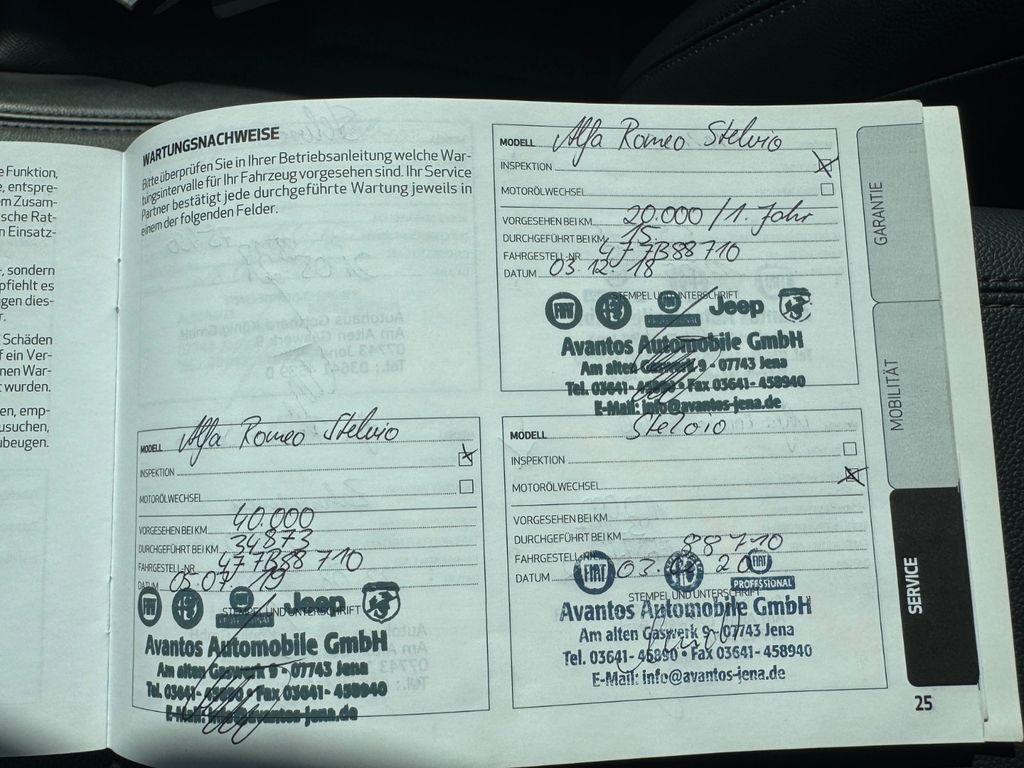 e Funktion,
e, entspre-
em Zusam-
sche Rat-
n Einsatz-
-, sondern
pfiehlt es
gen dies-
r.
Schäden
f ein Ver-
nen War-
t wurden.
en, emp-
usuchen,
ubeugen.
WARTUNGSNACHWEISE
Bitte überprüfen Sie in Ihrer Betriebsanleitung welche War-
tungsintervalle für Ihr Fahrzeug vorgesehen sind. Ihr Service
Partner bestätigt jede durchgeführte Wartung jeweils in
einem der folgenden Felder.
MODELL Alfa Romeo Stelvio
INSPEKTION
MOTORÖLWECHSEL
VORGESEHEN BEI KM 20.000 / 1. Jahr
DURCHGEFÜHRT BEI KM 15.
FAHRGESTELL-NR. 477B88710
DATUM 03.12.18
STEMPEL UND UNTERSCHRIFT
FIAT PROFESSIONAL Jeep
Avantos Automobile GmbH
Am alten Gaswerk 9 - 07743 Jena
Tel. 03641- 45890 • Fax 03641- 458940
E-Mail: info@avantos-jena.de
MODELL Alfa Romeo Stelvio
INSPEKTION
MOTORÖLWECHSEL
VORGESEHEN BEI KM 40.000
DURCHGEFÜHRT BEI KM 34873
FAHRGESTELL-NR. 477B88710
DATUM 05 07 19
STEMPEL UND UNTERSCHRIFT
FIAT PROFESSIONAL Jeep
Avantos Automobile GmbH
Am alten Gaswerk 9 - 07743 Jena
Tel. 03641- 45890 • Fax 03641- 458940
E-Mail: info@avantos-jena.de
MODELL Stelvio
INSPEKTION
MOTORÖLWECHSEL
VORGESEHEN BEI KM
DURCHGEFÜHRT BEI KM
FAHRGESTELL-NR. 88710
DATUM 03. 20
STEMPEL UND UNTERSCHRIFT
FIAT FIAT PROFESSIONAL
Avantos Automobile GmbH
Am alten Gaswerk 9 - 07743 Jena
Tel. 03641- 45890 • Fax 03641- 458940
E-Mail: info@avantos-jena.de
GARANTIE
MOBILITÄT
SERVICE
25